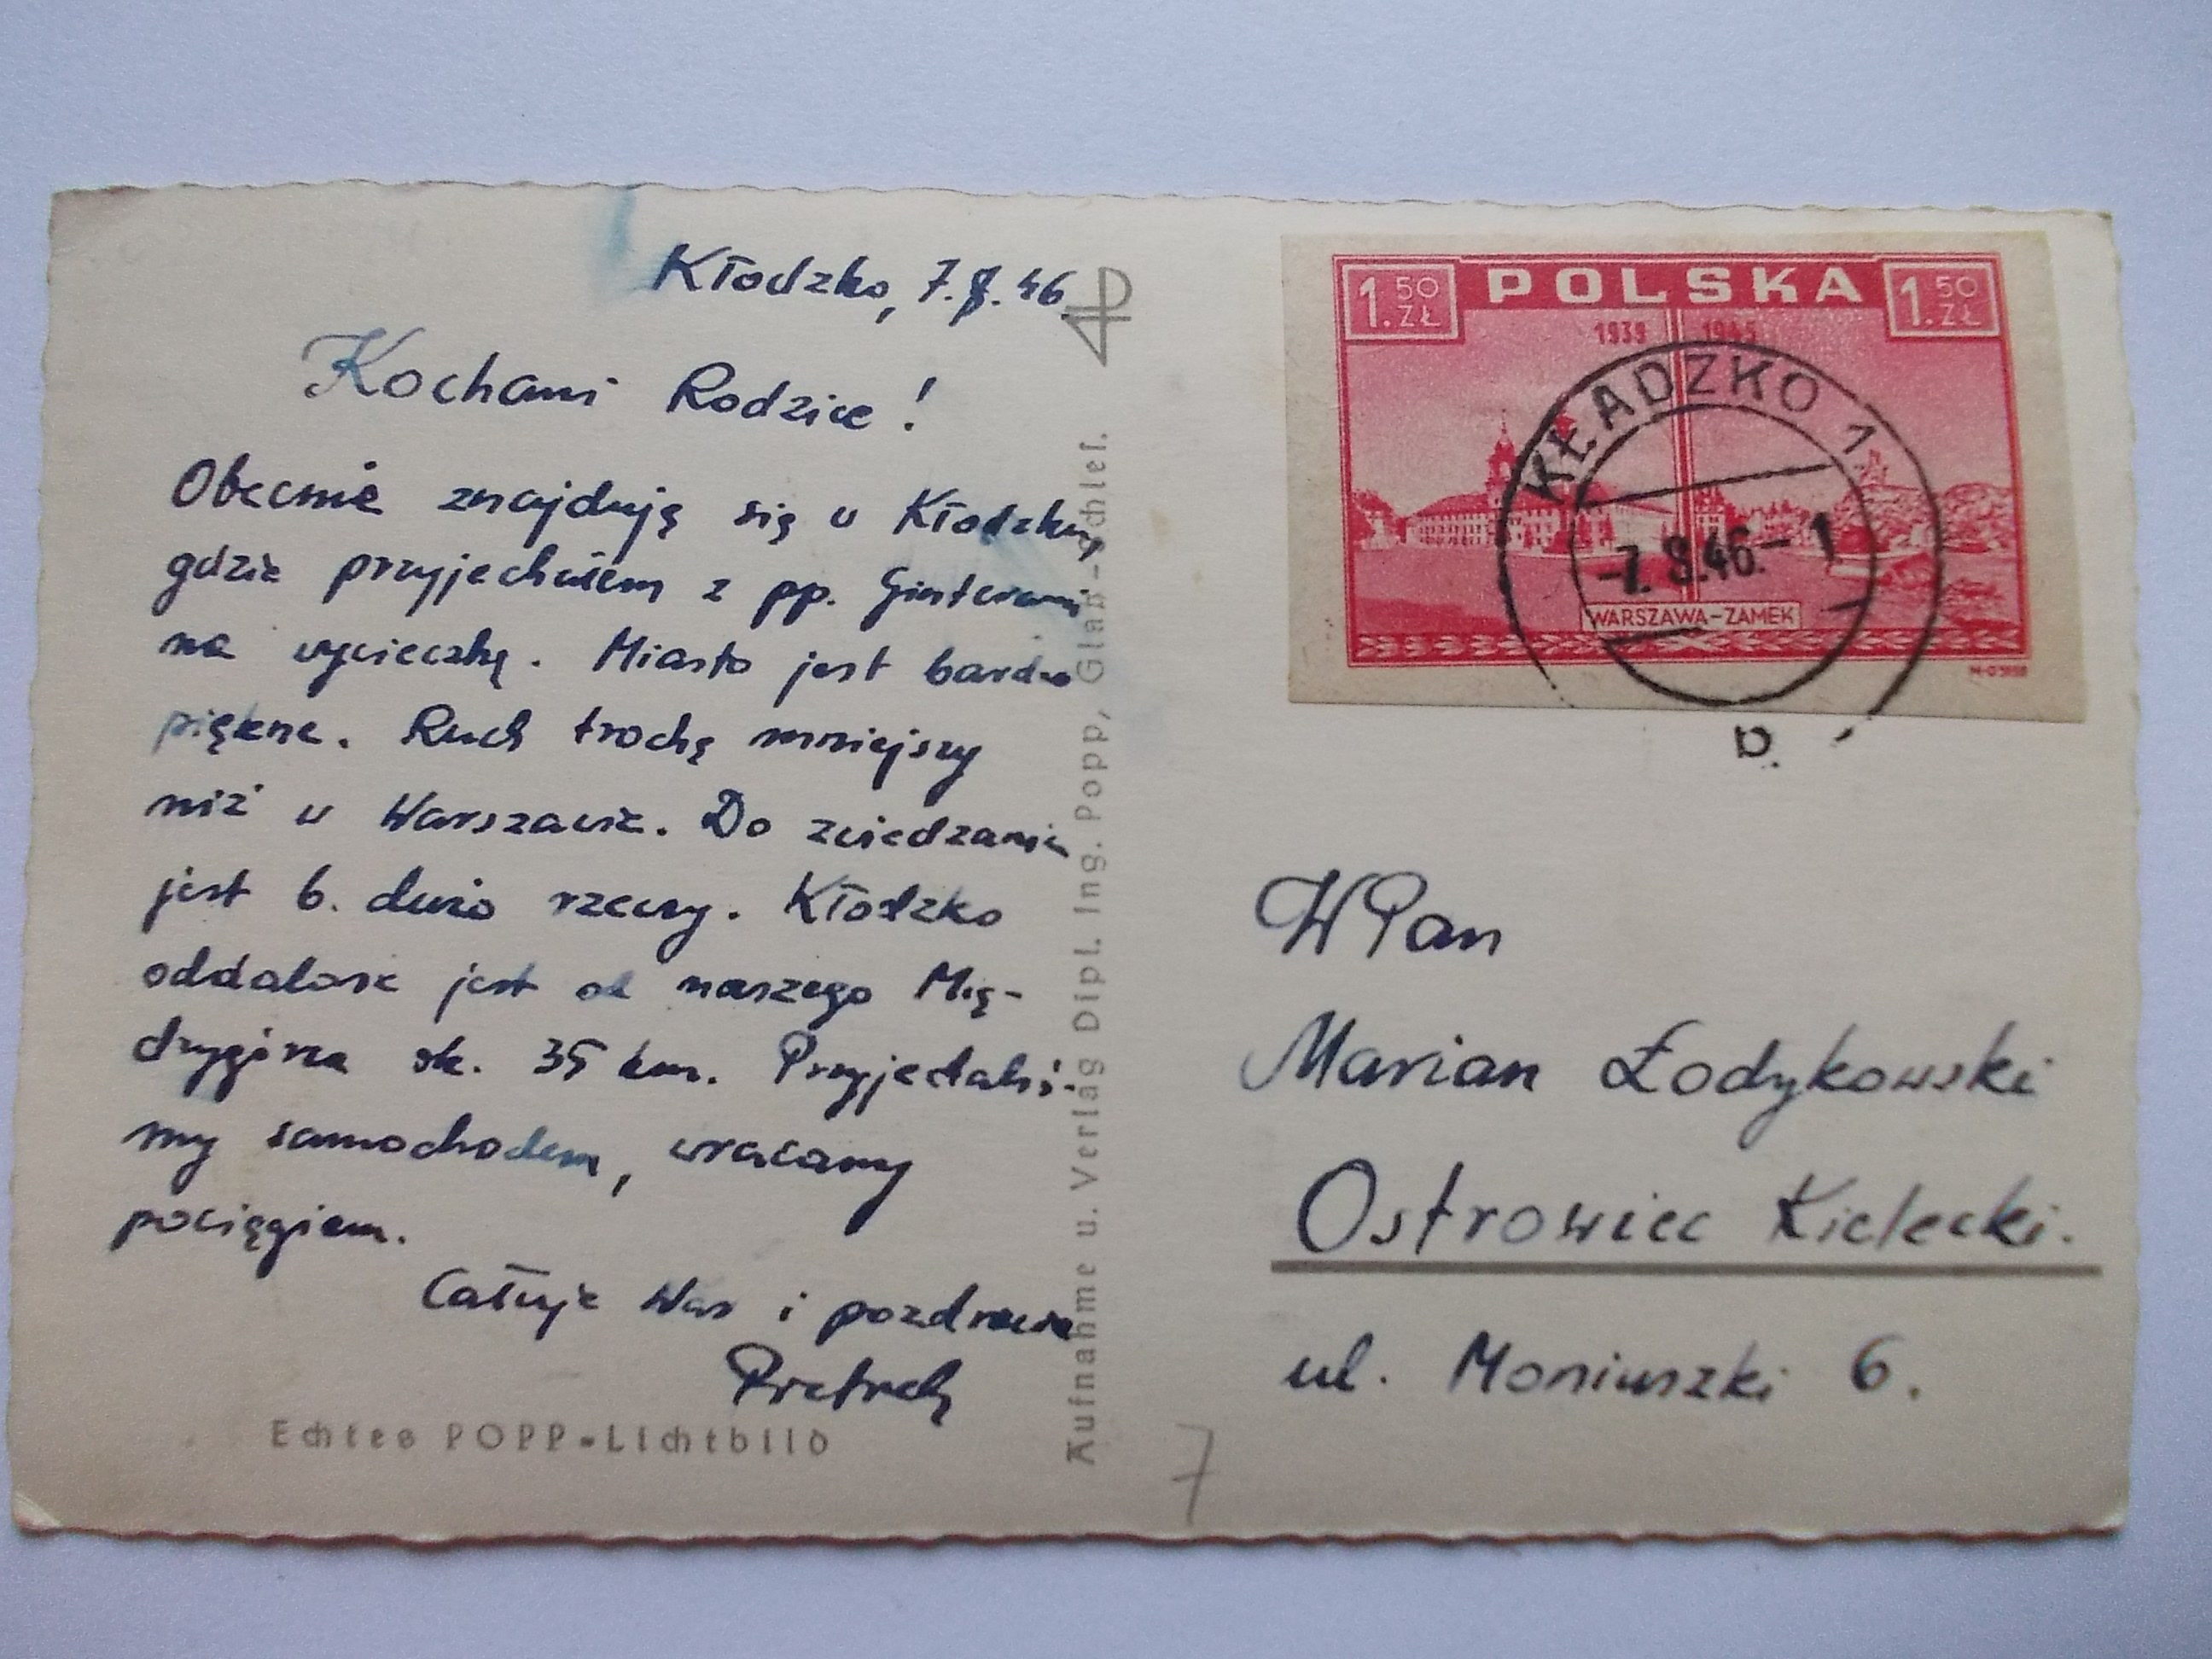 Kłodzko, 7.8.46.
Kochani Rodzice!
Obecnie znajduję się w Kłodzku,
gdzie przyjechałem z pp. Ginterami
na wycieczkę. Miasto jest bardzo
piękne. Ruch trochę mniejszy
niż w Warszawie. Do zwiedzania
jest b. dużo rzeczy. Kłodzko
oddalone jest od naszego Mię-
drzygórza ok. 35 km. Przyjechaliś-
my samochodem, wracamy
pociągiem.
Całuję Was i pozdrawiam
Echtes POPP-Lichtbild
Aufnahme u. Verlag Dipl. Ing. Popp, Glatz-Schles.
POLSKA
1.50 ZŁ
1.50 ZŁ
1939 1945
KŁADZKO 1
-7.8.46.-1
WARSZAWA-ZAMEK
a
WPan
Marian Łodykowski
Ostrowiec Kielecki.
ul. Moniuszki 6.
7